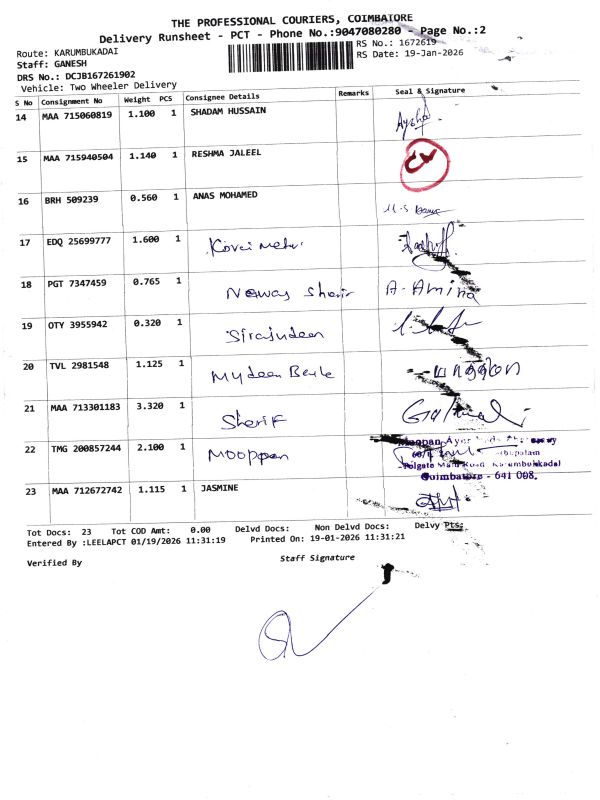 THE PROFESSIONAL COURIERS, COIMBATORE
Delivery Runsheet - PCT - Phone No.:9047080280 - Page No.:2
Route: KARUMBUKADAI RS No.: 1672619
Staff: GANESH RS Date: 19-Jan-2026
DRS No.: DCJB167261902
Vehicle: Two Wheeler Delivery
S No Consignment No Weight PCS Consignee Details Remarks Seal & Signature
14 MAA 715060819 1.100 1 SHADAM HUSSAIN
15 MAA 715940504 1.140 1 RESHMA JALEEL
16 BRH 509239 0.560 1 ANAS MOHAMED
17 EDQ 25699777 1.600 1
18 PGT 7347459 0.765 1 Nawas Sherif A. Amina
19 OTY 3955942 0.320 1 Sirajudeen
20 TVL 2981548 1.125 1 Mydeen
21 MAA 713301183 3.320 1 Sherif
22 TMG 200857244 2.100 1 Mooppan
Main Road Karumbukadai
Coimbatore - 641 008.
23 MAA 712672742 1.115 1 JASMINE
Tot Docs: 23 Tot COD Amt: 0.00 Delvd Docs: Non Delvd Docs: Delvy Pts:
Entered By :LEELAPCT 01/19/2026 11:31:19 Printed On: 19-01-2026 11:31:21
Verified By Staff Signature